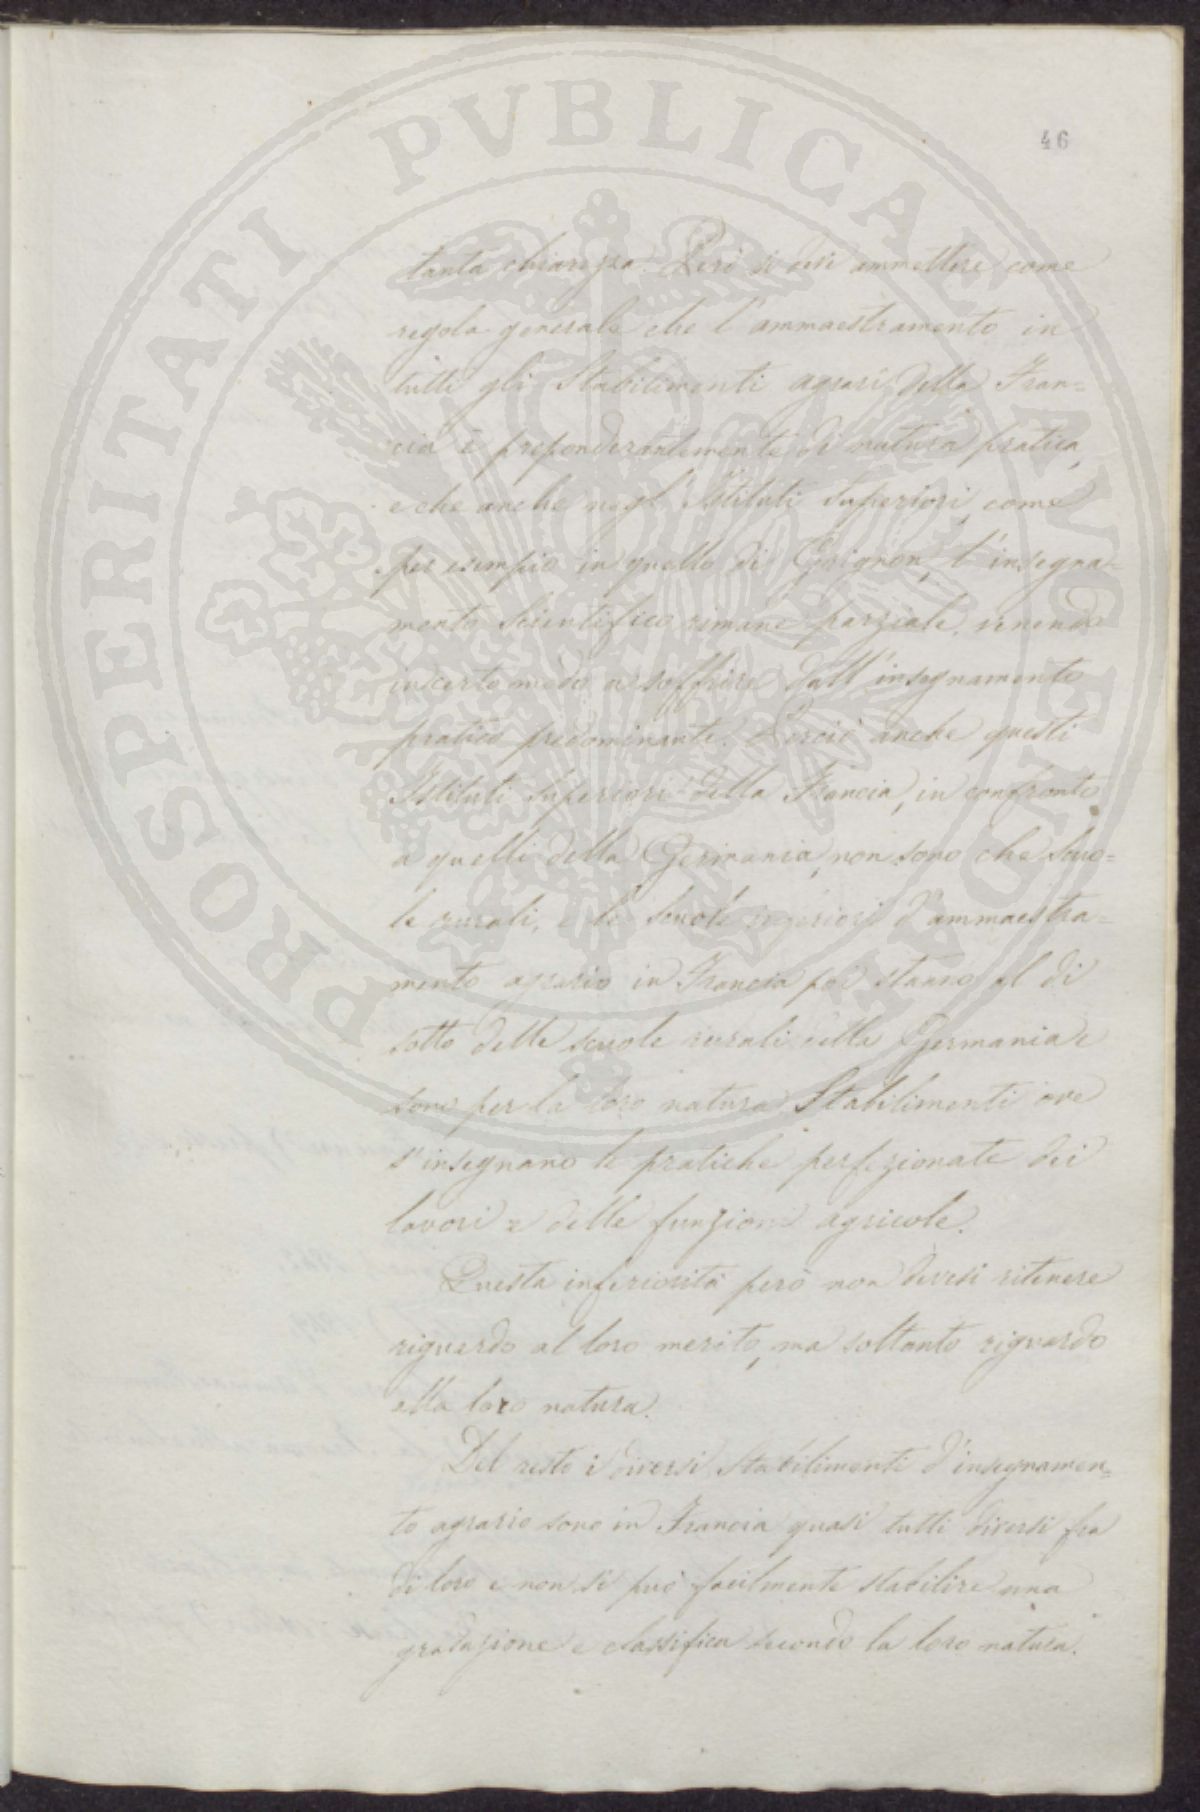 PROSPERITATI PVBLICAE AVGENDAE
46
tanta chiarezza. Però si deve ammettere come
regola generale che l'ammaestramento in
tutti gli Stabilimenti agrari della Fran=
cia è preponderantemente di natura pratica,
e che anche negl'Istituti Superiori, come
per esempio in quello di Grignon, l'insegna=
mento scientifico rimane parziale, venendo
in certo modo a soffrire dall'insegnamento
pratico predominante. Perciò anche questi
Istituti Superiori della Francia, in confronto
a quelli della Germania, non sono che Scuo=
le rurali, e le Scuole inferiori d'ammaestra=
mento agrario in Francia poi stanno al di
sotto delle scuole rurali della Germania e
sono per la loro natura Stabilimenti ove
s'insegnano le pratiche perfezionate dei
lavori e delle funzioni agricole.
Questa inferiorità però non devesi ritenere
riguardo al loro merito, ma soltanto riguardo
alla loro natura.
Del resto i diversi Stabilimenti d'insegnamen=
to agrario sono in Francia quasi tutti diversi fra
di loro e non si può facilmente stabilire una
gradazione e classifica secondo la loro natura.